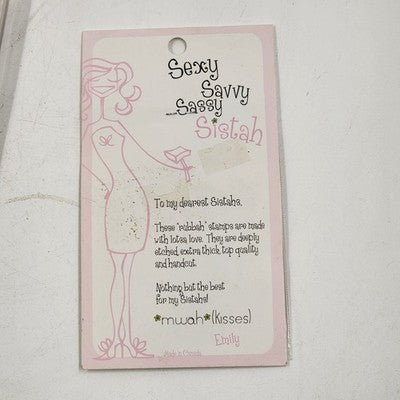 Sexy
Savvy
Sassy
Sistah
To my dearest Sistahs,
These "rubbah" stamps are made
with lotsa love. They are deeply
etched, extra thick, top quality
and handcut.
Nothing but the best
for my Sistahs!
*mwah*(kisses)
Emily
Made in Canada